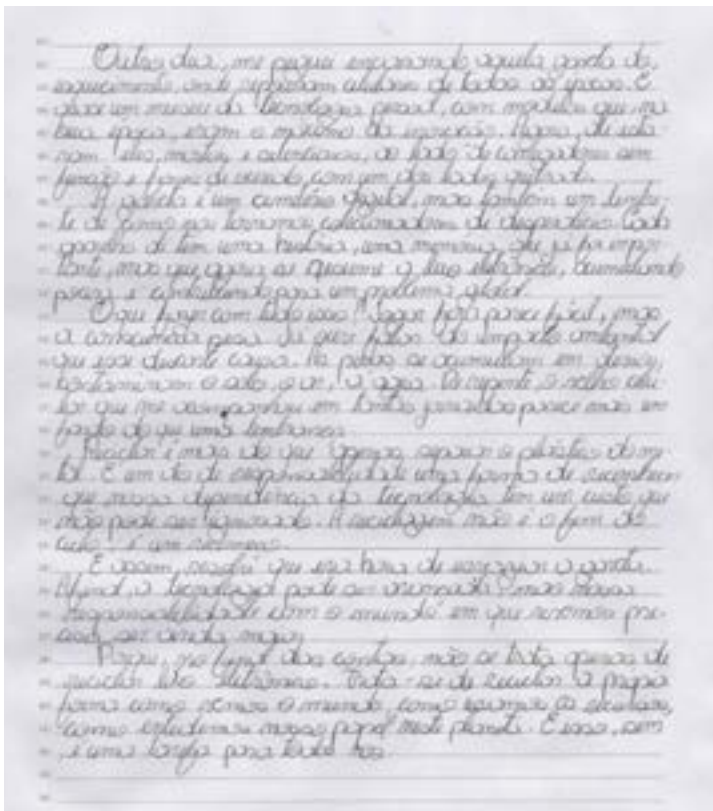 Outro dia, me peguei encarando aquela gaveta do
esquecimento, onde repousam celulares de todas as épocas. É
quase um museu da tecnologia pessoal, com modelos que, na
sua época, eram o máximo da inovação. Agora, de
nam eles, mortos e silenciosos, ao lado de carregadores sem
função e fones de ouvido com um dos lados
A gaveta é um cemitério digital, mas também um lembre-
te de como nos tornamos colecionadores de desperdício. Cada
aparelho ali tem uma história, uma memória, que já foi impor-
tante, mas que agora se resume a lixo eletrônico, acumulando
poeira e contribuindo para um problema global.
O que fazer com tudo isso? Jogar fora parece fácil, mas
a consciência pesa. Já ouvi falar do impacto ambiental
que esse descarte causa. As peças se acumulam em aterros,
contaminam o solo, o ar, a água. De repente, o velho celu-
lar que me acompanhou em tantas jornadas parece mais um
fardo do que uma lembrança.
Reciclar é mais do que apenas separar o plástico do me-
tal. É um ato de responsabilidade uma forma de reconhecer
que nossa dependência da tecnologia tem um custo que
não pode ser ignorado. A reciclagem não é o fim do
ciclo, é um recomeço.
E assim, percebi que era hora de esvaziar a gaveta.
Afinal, a tecnologia pode ser avançada, mas nossa
responsabilidade com o mundo em que vivemos pre-
cisa ser ainda maior.
Porque, no final das contas, não se trata apenas de
reciclar lixo eletrônico. Trata-se de reciclar a própria
forma como vemos o mundo, como usamos os recursos,
como entendemos nosso papel neste planeta. E essa, sim
, é uma tarefa para todos nós.